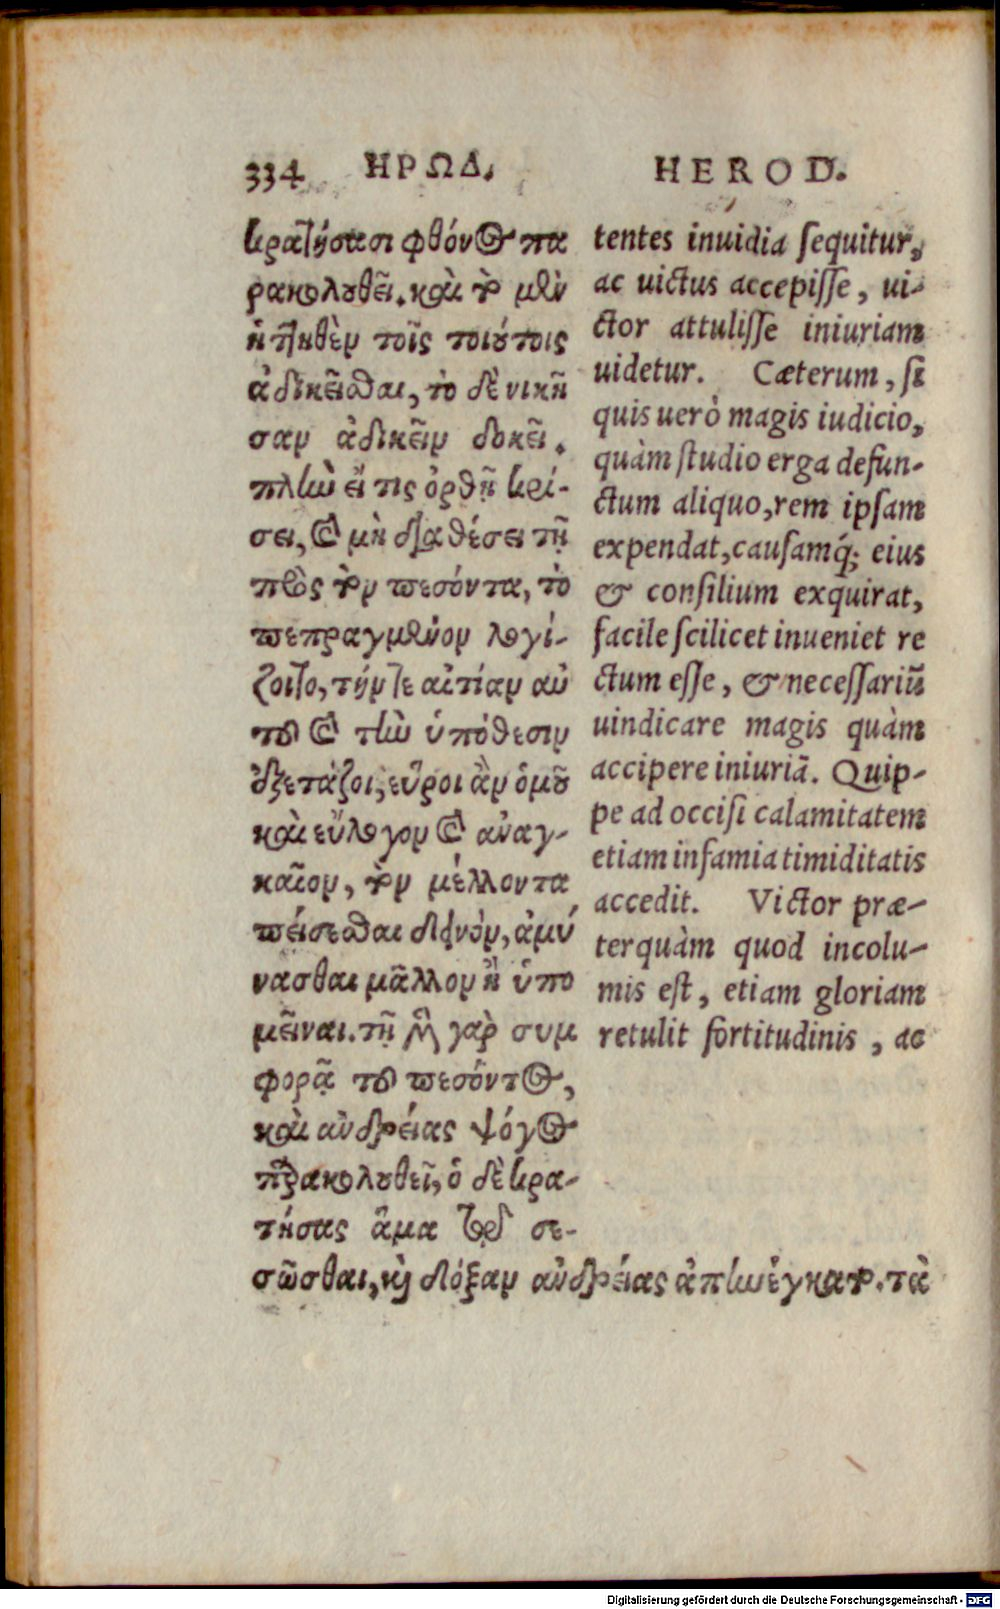 334 ΗΡΩΔ.
κρατήσασι φθόνος πα
ρακολουθεῖ. καὶ τὸ μὲν
ἡττηθὲν τοῖς τοιούτοις
ἀδικεῖσθαι, τὸ δὲ νικῆ
σαν ἀδικεῖν δοκεῖ.
πλὴν εἴ τις ὀρθῇ κρί-
σει, καὶ μὴ διαθέσει τῇ
πρὸς τὸν πεσόντα, τὸ
πεπραγμένον λογί-
ζοιτο, τήν τε αἰτίαν αὐ
τοῦ καὶ τὴν ὑπόθεσιν
ἐξετάζοι, εὕροι ἂν ὁμοῦ
καὶ εὔλογον καὶ ἀναγ-
καῖον, τὸν μέλλοντα
πείσεσθαι δεινὸν, ἀμύ
νασθαι μᾶλλον ἢ ὑπο
μεῖναι. τῇ μὲν γὰρ συμ
φορᾷ τοῦ πεσόντος,
καὶ ἀνδρείας ψόγος
παρακολουθεῖ, ὁ δὲ κρα-
τήσας ἅμα τῷ σε-
σῶσθαι, καὶ δόξαν ἀνδρείας ἀπηνέγκατο. τὰ
HEROD.
tentes inuidia sequitur,
ac uictus accepisse, ui-
ctor attulisse iniuriam
uidetur. Cæterum, si
quis uerò magis iudicio,
quàm studio erga defun-
ctum aliquo, rem ipsam
expendat, causamq́; eius
& consilium exquirat,
facile scilicet inueniet re
ctum esse, & necessariũ
uindicare magis quàm
accipere iniuriã. Quip-
pe ad occisi calamitatem
etiam infamia timiditatis
accedit. Victor præ-
terquàm quod incolu-
mis est, etiam gloriam
retulit fortitudinis, ac
Digitalisierung gefördert durch die Deutsche Forschungsgemeinschaft - DFG